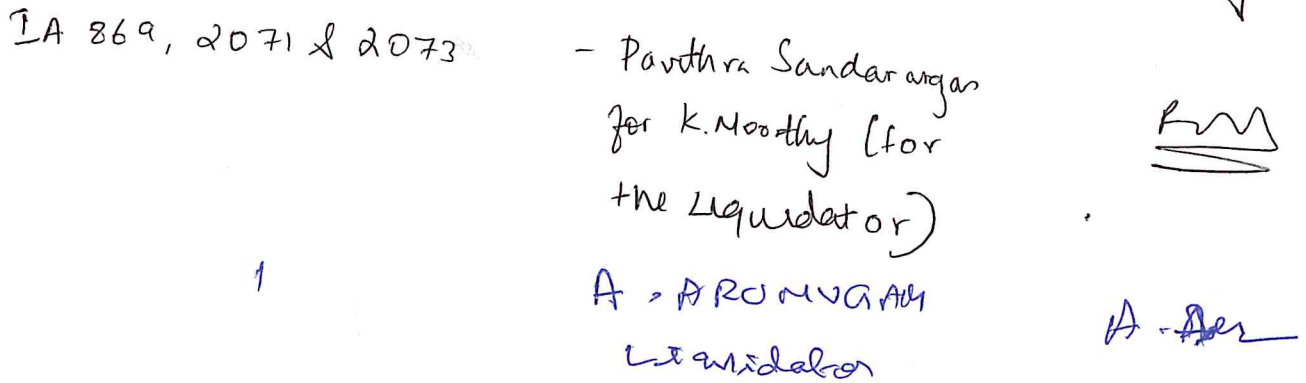 IA 869, 2071 & 2073
- Pavithra Sandararagan
for K. Moorthy (for
the Liquidator)
1
A. ARUMUGAM
Liquidator